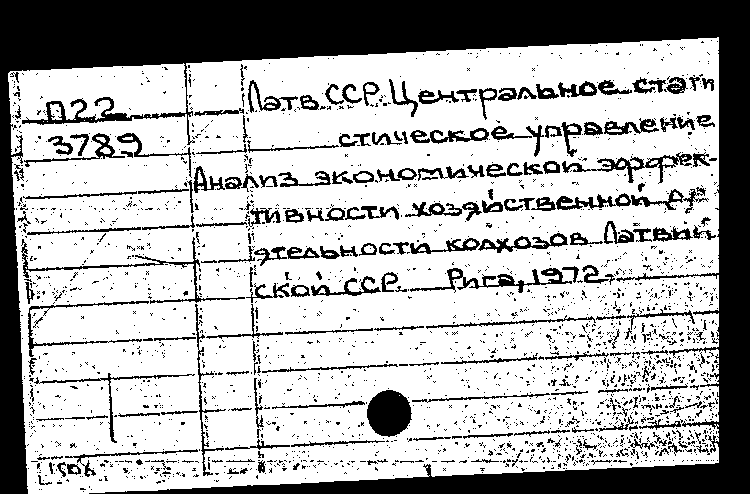 П22
3789
Латв ССР. Центральное стати
стическое управление
Анализ экономической эффек-
тивности хозяйственной де
ятельности колхозов Латвий
ской ССР. Рига, 1972.